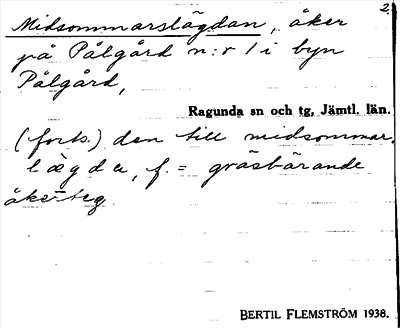 2.
Midsommarslägdan, åker
på Pålgård n:r 1 i byn
Pålgård,
Ragunda sn och tg, Jämtl. län.
(forts.) den till midsommar.
lägda, f. = gräsbärande
åkerteg
BERTIL FLEMSTRÖM 1938.